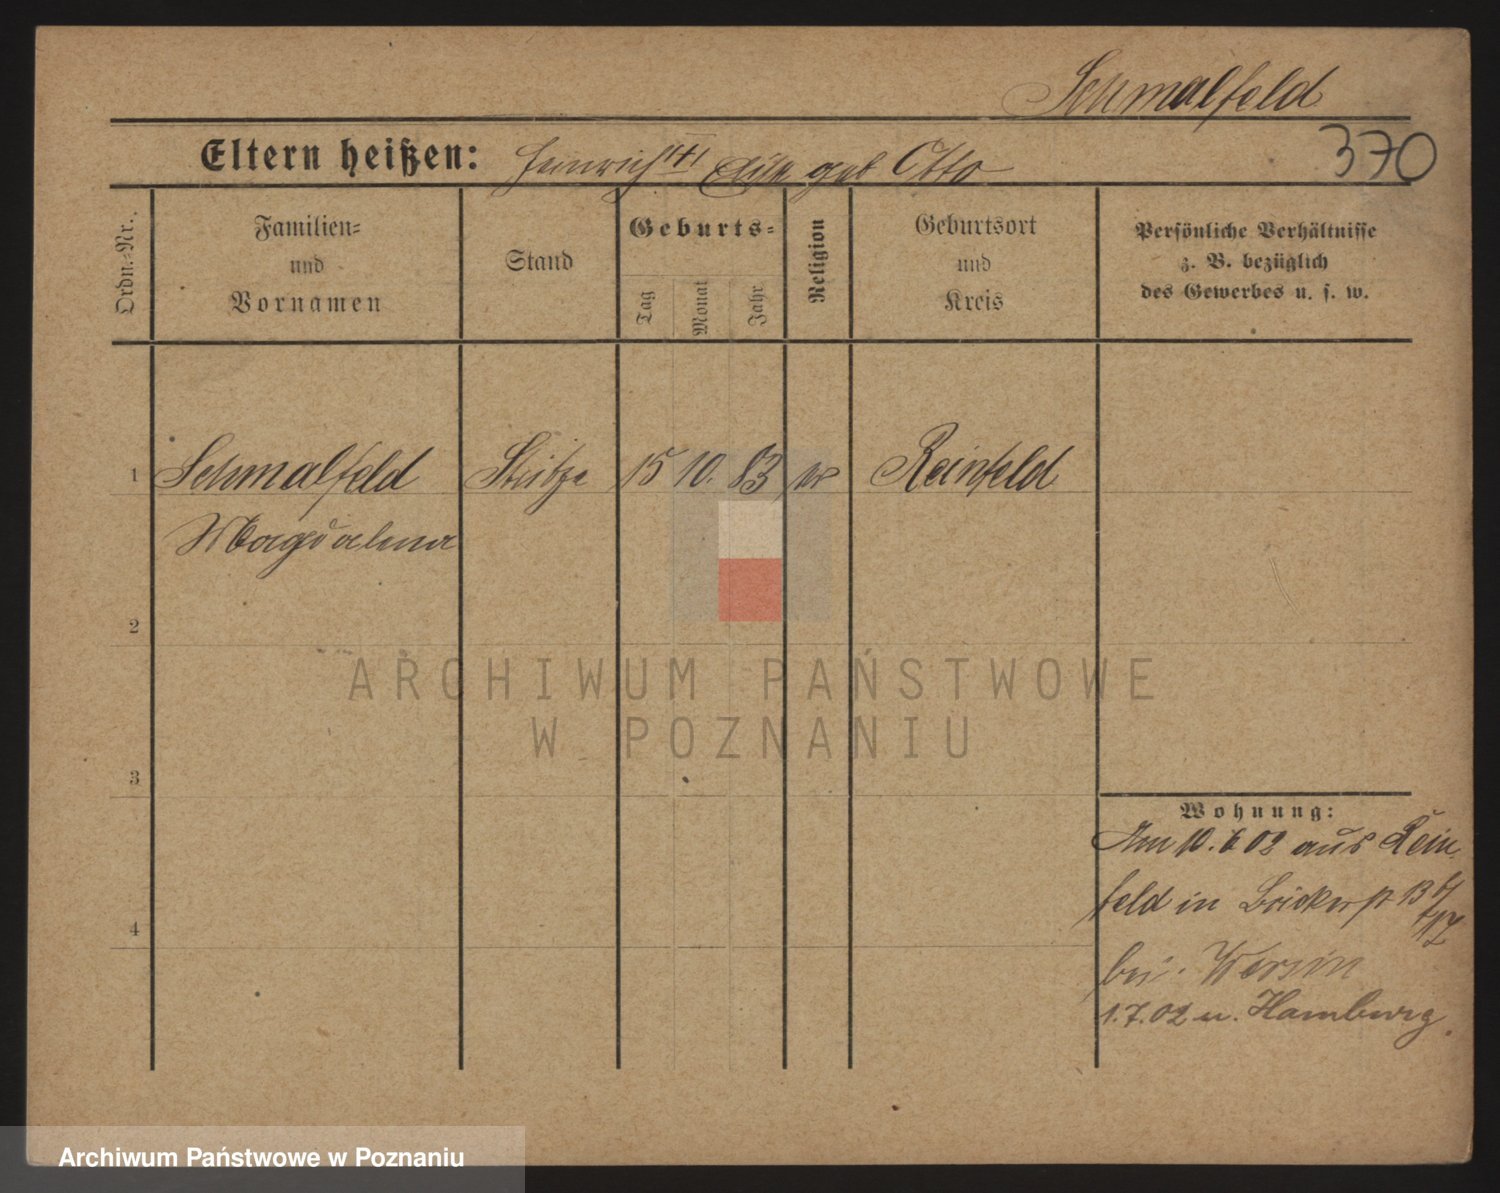 Schmalfeld
370
Eltern heißen: Heinrich geb Otto
Ordn.-Nr.
Familien-
und
Vornamen
Stand
Geburts-
Tag
Monat
Jahr
Religion
Geburtsort
und
Kreis
Persönliche Verhältnisse
z. B. bezüglich
des Gewerbes u. s. w.
1 Schmalfeld 15 10. 83 Reinfeld
Magdalena
2
3
4
Wohnung:
Am 10. 6 02 aus Rein
feld in
bei Wersin
1.7.02 n. Hamburg.
ARCHIWUM PAŃSTWOWE
W POZNANIU
Archiwum Państwowe w Poznaniu